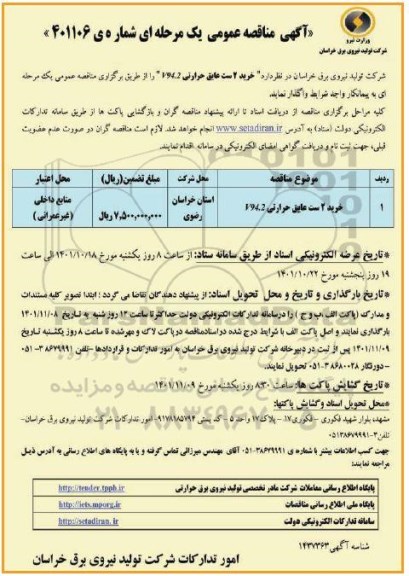 وزارت نیرو
شرکت تولید نیروی برق خراسان
«آگهی مناقصه عمومی یک مرحله ای شماره ی ۴۰۱۱۰۶»
شرکت تولید نیروی برق خراسان در نظر دارد" خرید ۲ ست عایق حرارتی V94.2 " را از طریق برگزاری مناقصه عمومی یک مرحله
ای به پیمانکار واجد شرایط واگذار نمایند.
کلیه مراحل برگزاری مناقصه از دریافت اسناد تا ارائه پیشنهاد مناقصه گران و بازگشایی پاکت ها از طریق سامانه تدارکات
الکترونیکی دولت (ستاد) به آدرس www.setadiran.ir انجام خواهد شد. لازم است مناقصه گران در صورت عدم عضویت
قبلی، جهت ثبت نام و دریافت گواهی امضای الکترونیکی در سامانه ،اقدام نمایند.
ردیف موضوع مناقصه محل شرکت مبلغ تضمین(ریال) محل اعتبار
۱ خرید ۲ ست عایق حرارتی V94.2 استان خراسان رضوی ۷,۵۰۰,۰۰۰,۰۰۰ ریال منابع داخلی (غیرعمرانی)
*تاریخ عرضه الکترونیکی اسناد از طریق سامانه ستاد: از ساعت ۸ روز یکشنبه مورخ ۱۴۰۱/۱۰/۱۸ الی ساعت
۱۹ روز پنجشنبه مورخ ۱۴۰۱/۱۰/۲۲
*تاریخ بارگذاری و تاریخ و محل تحویل اسناد: از پیشنهاد دهندگان تقاضا می گردد : ابتدا تصویر کلیه مستندات
و مدارک (پاکت الف ،ب و ج ) را در سامانه تدارکات الکترونیکی دولت حداکثر تا ساعت ۱۳ روز شنبه به تاریخ ۱۴۰۱/۱۱/۰۸
بارگذاری نمایند و اصل پاکت الف با شرایط درج شده در اسناد مناقصه در پاکت لاک و مهر شده تا ساعت ۸ روز یکشنبه تاریخ
۱۴۰۱/۱۱/۰۹ پس از ثبت در دبیرخانه شرکت تولید نیروی برق خراسان به امور تدارکات و قراردادها –تلفن ۳۸۶۷۹۹۹۱-۰۵۱
–دورنگار ۳۸۶۸۰۰۲۸-۰۵۱ تحویل نمایند.
*تاریخ گشایش پاکت ها: ساعت ۸:۳۰ روز یکشنبه مورخ ۱۴۰۱/۱۱/۰۹
*محل تحویل اسناد و گشایش پاکتها:
مشهد، بلوار شهید فکوری – فکوری۱۷ – پلاک۱۷ واحد ۵ - کد پستی ۹۱۷۸۱۸۵۷۹۴- امور تدارکات شرکت تولید نیروی برق خراسان-
تلفن:۰۵۱۳۸۶۷۹۹۹۱-۳
جهت کسب اطلاعات بیشتر با شماره ی ۳۸۶۷۹۹۹۱-۰۵۱ آقای مهندس میرزائی تماس گرفته و یا به پایگاه های اطلاع رسانی به آدرس ذیل
مراجعه نمایند:
پایگاه اطلاع رسانی معاملات شرکت مادر تخصصی تولید نیروی برق حرارتی http://tender.tpph.ir
پایگاه ملی اطلاع رسانی مناقصات http://iets.mporg.ir
سامانه تدارکات الکترونیکی دولت http://setadiran.ir
شناسه آگهی ۱۴۳۷۳۶۳
امور تدارکات شرکت تولید نیروی برق خراسان